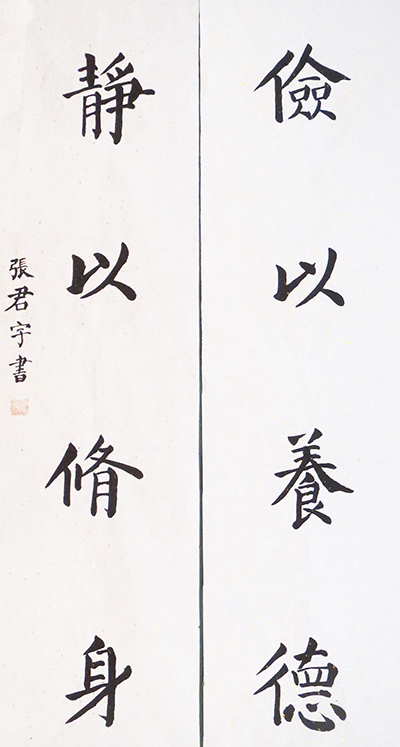 儉以養德
靜以脩身
張君宇書